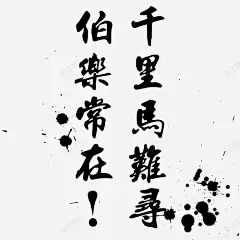 千里馬難尋
伯樂常在！